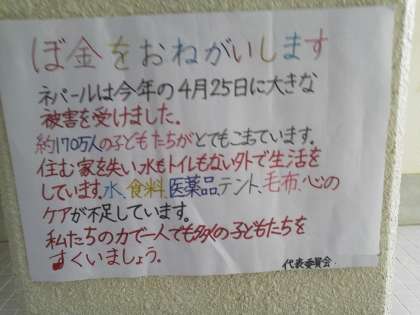 ぼ金をおねがいします
ネパールは今年の4月25日に大きな
被害を受けました。
約170万人の子どもたちがとてもこまています。
住む家を失い、水もトイレもない外で生活を
しています。水、食料、医薬品、テント、毛布、心の
ケアが不足しています。
私たちの力で一人でも多くの子どもたちを
すくいましょう。
代表委員会